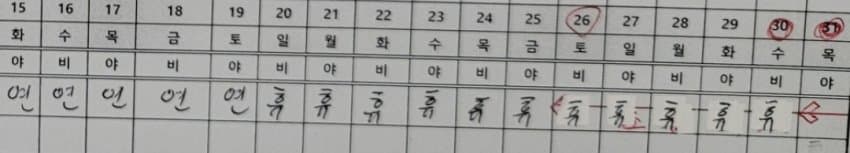 15 16 17 18 19 20 21 22 23 24 25 26 27 28 29 30 31
화 수 목 금 토 일 월 화 수 목 금 토 일 월 화 수 목
야 비 야 비 야 비 야 비 야 비 야 비 야 비 야 비 야
연 연 연 연 연 휴 휴 휴 휴 휴 휴 휴 휴 휴 휴 휴